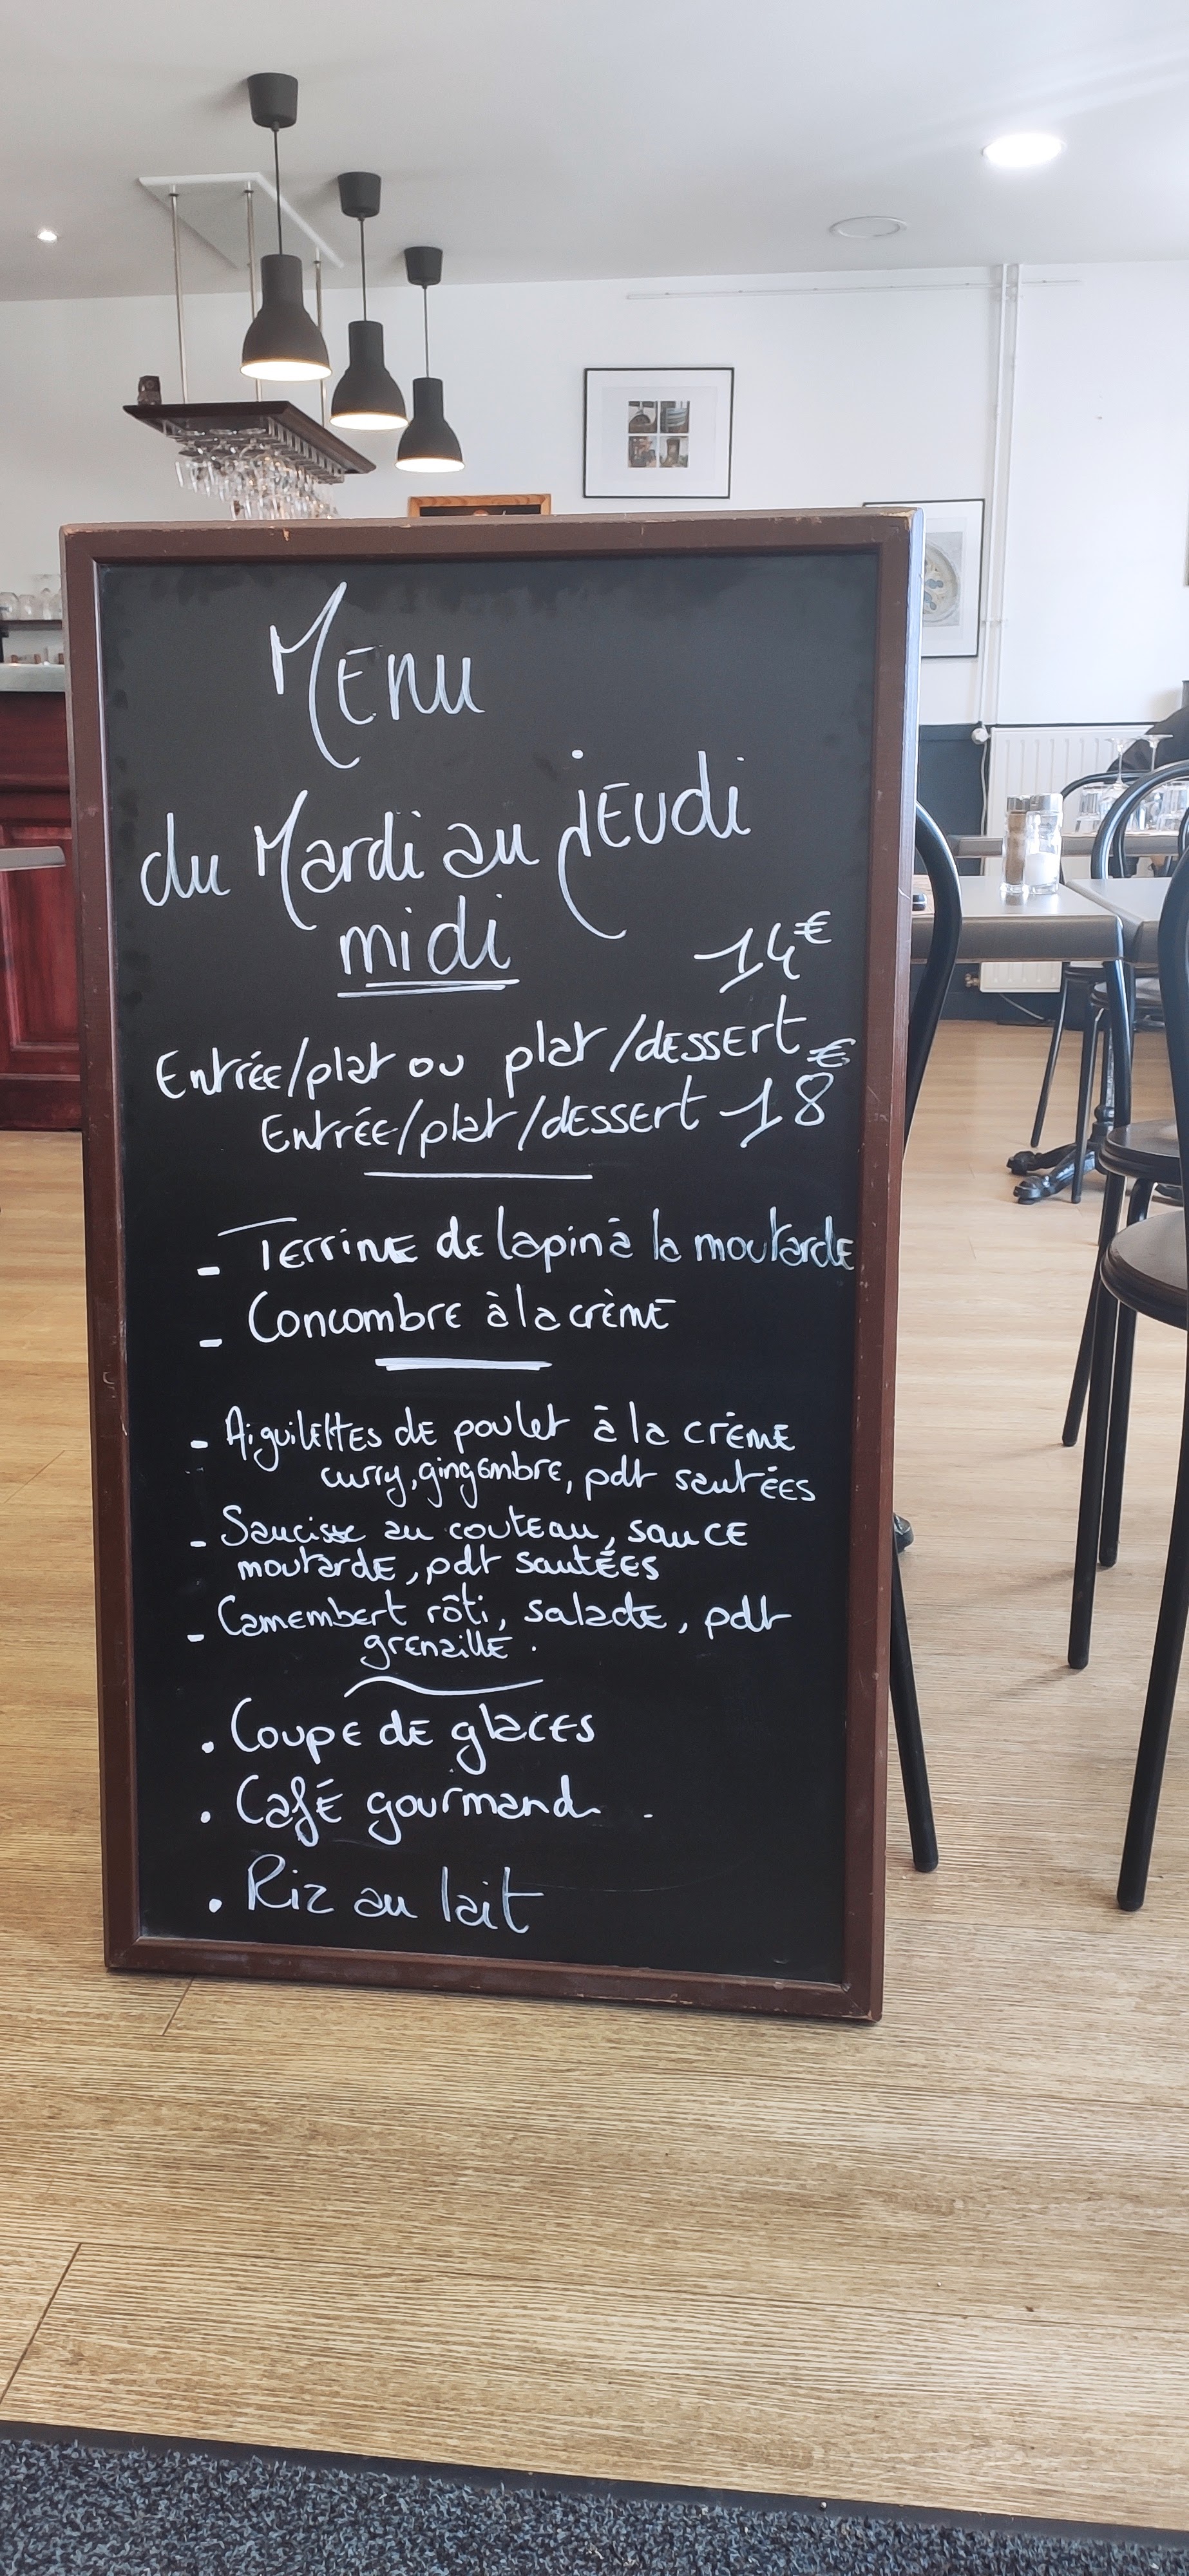 Menu
du Mardi au jeudi
midi
14€
Entrée/plat ou plat/dessert
Entrée/plat/dessert 18€
- Terrine de lapin à la moutarde
- Concombre à la crème
- Aiguilettes de poulet à la crème
curry, gingembre, pdt sautées
- Saucisse au couteau, sauce
moutarde, pdt sautées
- Camembert rôti, salade, pdt
grenaille.
. Coupe de glaces
. Café gourmand
. Riz au lait